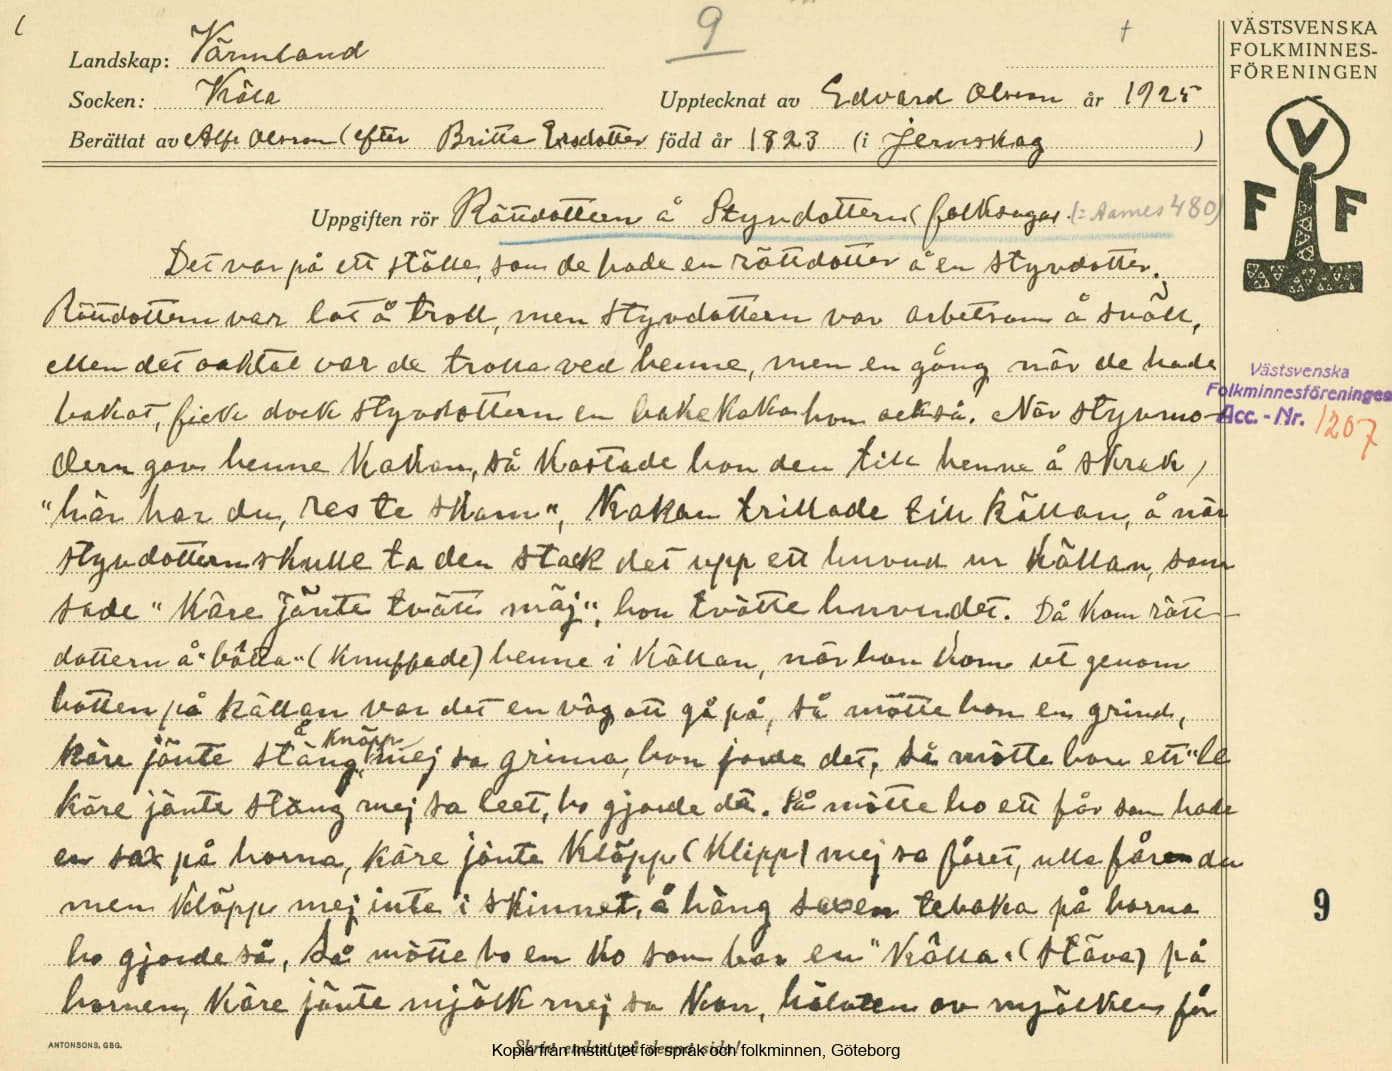 9
Landskap: Värmland
Socken: Köla
Upptecknat av Edvard Olsson år 1925
Berättat av Alfr. Olsson (efter Britta Ersdotter född år 1823 (i Jernskog)
VÄSTSVENSKA
FOLKMINNES-
FÖRENINGEN
V
F F
Uppgiften rör Rättdottern å Styvdottern (folksaga) (= Aarnes 480)
Det var på ett ställe, som de hade en rättdotter å en styvdotter.
Rättdottern var lat å troll, men styvdottern var arbetsam å snäll,
Men det oaktat var de trolla ved henne, men en gång när de hade
bakat, fick dock styvdottern en bakekaka hon också. När styvmo-
dern gav henne Kakan, så Kastade hon den till henne å skrek,
"här har du, res te skam", Kakan trillade till källan, å när
styvdottern skulle ta den stack det upp ett huvud ur Källan, som
sade "Käre jänte tvätt mäj", hon tvätte huvudet. Då kom rätt-
dottern å "bötta" (knuffade) henne i Källan, när hon kom ut genom
botten på källan var det en väg att gå på, så mötte hon en grind,
käre jänte stäng å knäpp mej sa grinna, hon jorde det, Så mötte hon ett "le
käre jänte stäng mej sa leet, ho gjorde dä. Så mötte ho ett får som hade
en sax på horna, käre jänte Kläpp (Klipp) mej sa fåret, ulla får du
men Kläpp mej inte i skinnet, å häng saxen tebaka på horna
ho gjorde så, Så mötte ho en Ko som bar en "Källa" (stäva) på
hornen, Käre jänte mjölk mej sa Kon, hälvten av mjölken får
Västsvenska
Folkminnesföreningen
Acc.-Nr. 1207
9
ANTONSONS, GBG.
Skriv endast på denna sida!
Kopia från Institutet för språk och folkminnen, Göteborg